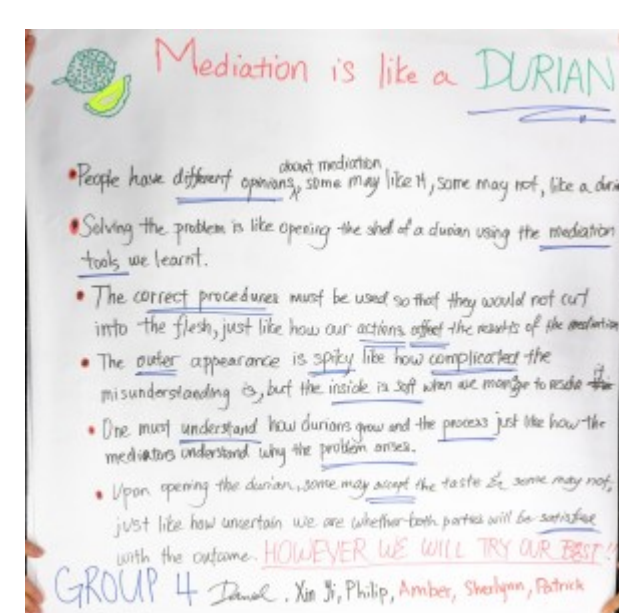 Mediation is like a DURIAN
about mediation
• People have different opinions, some may like it, some may not, like a
• Solving the problem is like opening the shell of a durian using the mediation
tools we learnt.
• The correct procedures must be used so that they would not cut
into the flesh, just like how our actions affect the results of the mediation
• The outer appearance is spiky like how complicated the
misunderstanding is, but the inside is soft when we manage to resolve it
• One must understand how durians grow and the process just like how the
mediators understand why the problem arises.
• Upon opening the durian, some may accept the taste & some may not,
just like how uncertain we are whether both parties will be satisfied
with the outcome. HOWEVER WE WILL TRY OUR BEST!!
GROUP 4 Daniel, Xin Ji, Philip, Amber, Sherlynn, Patrick